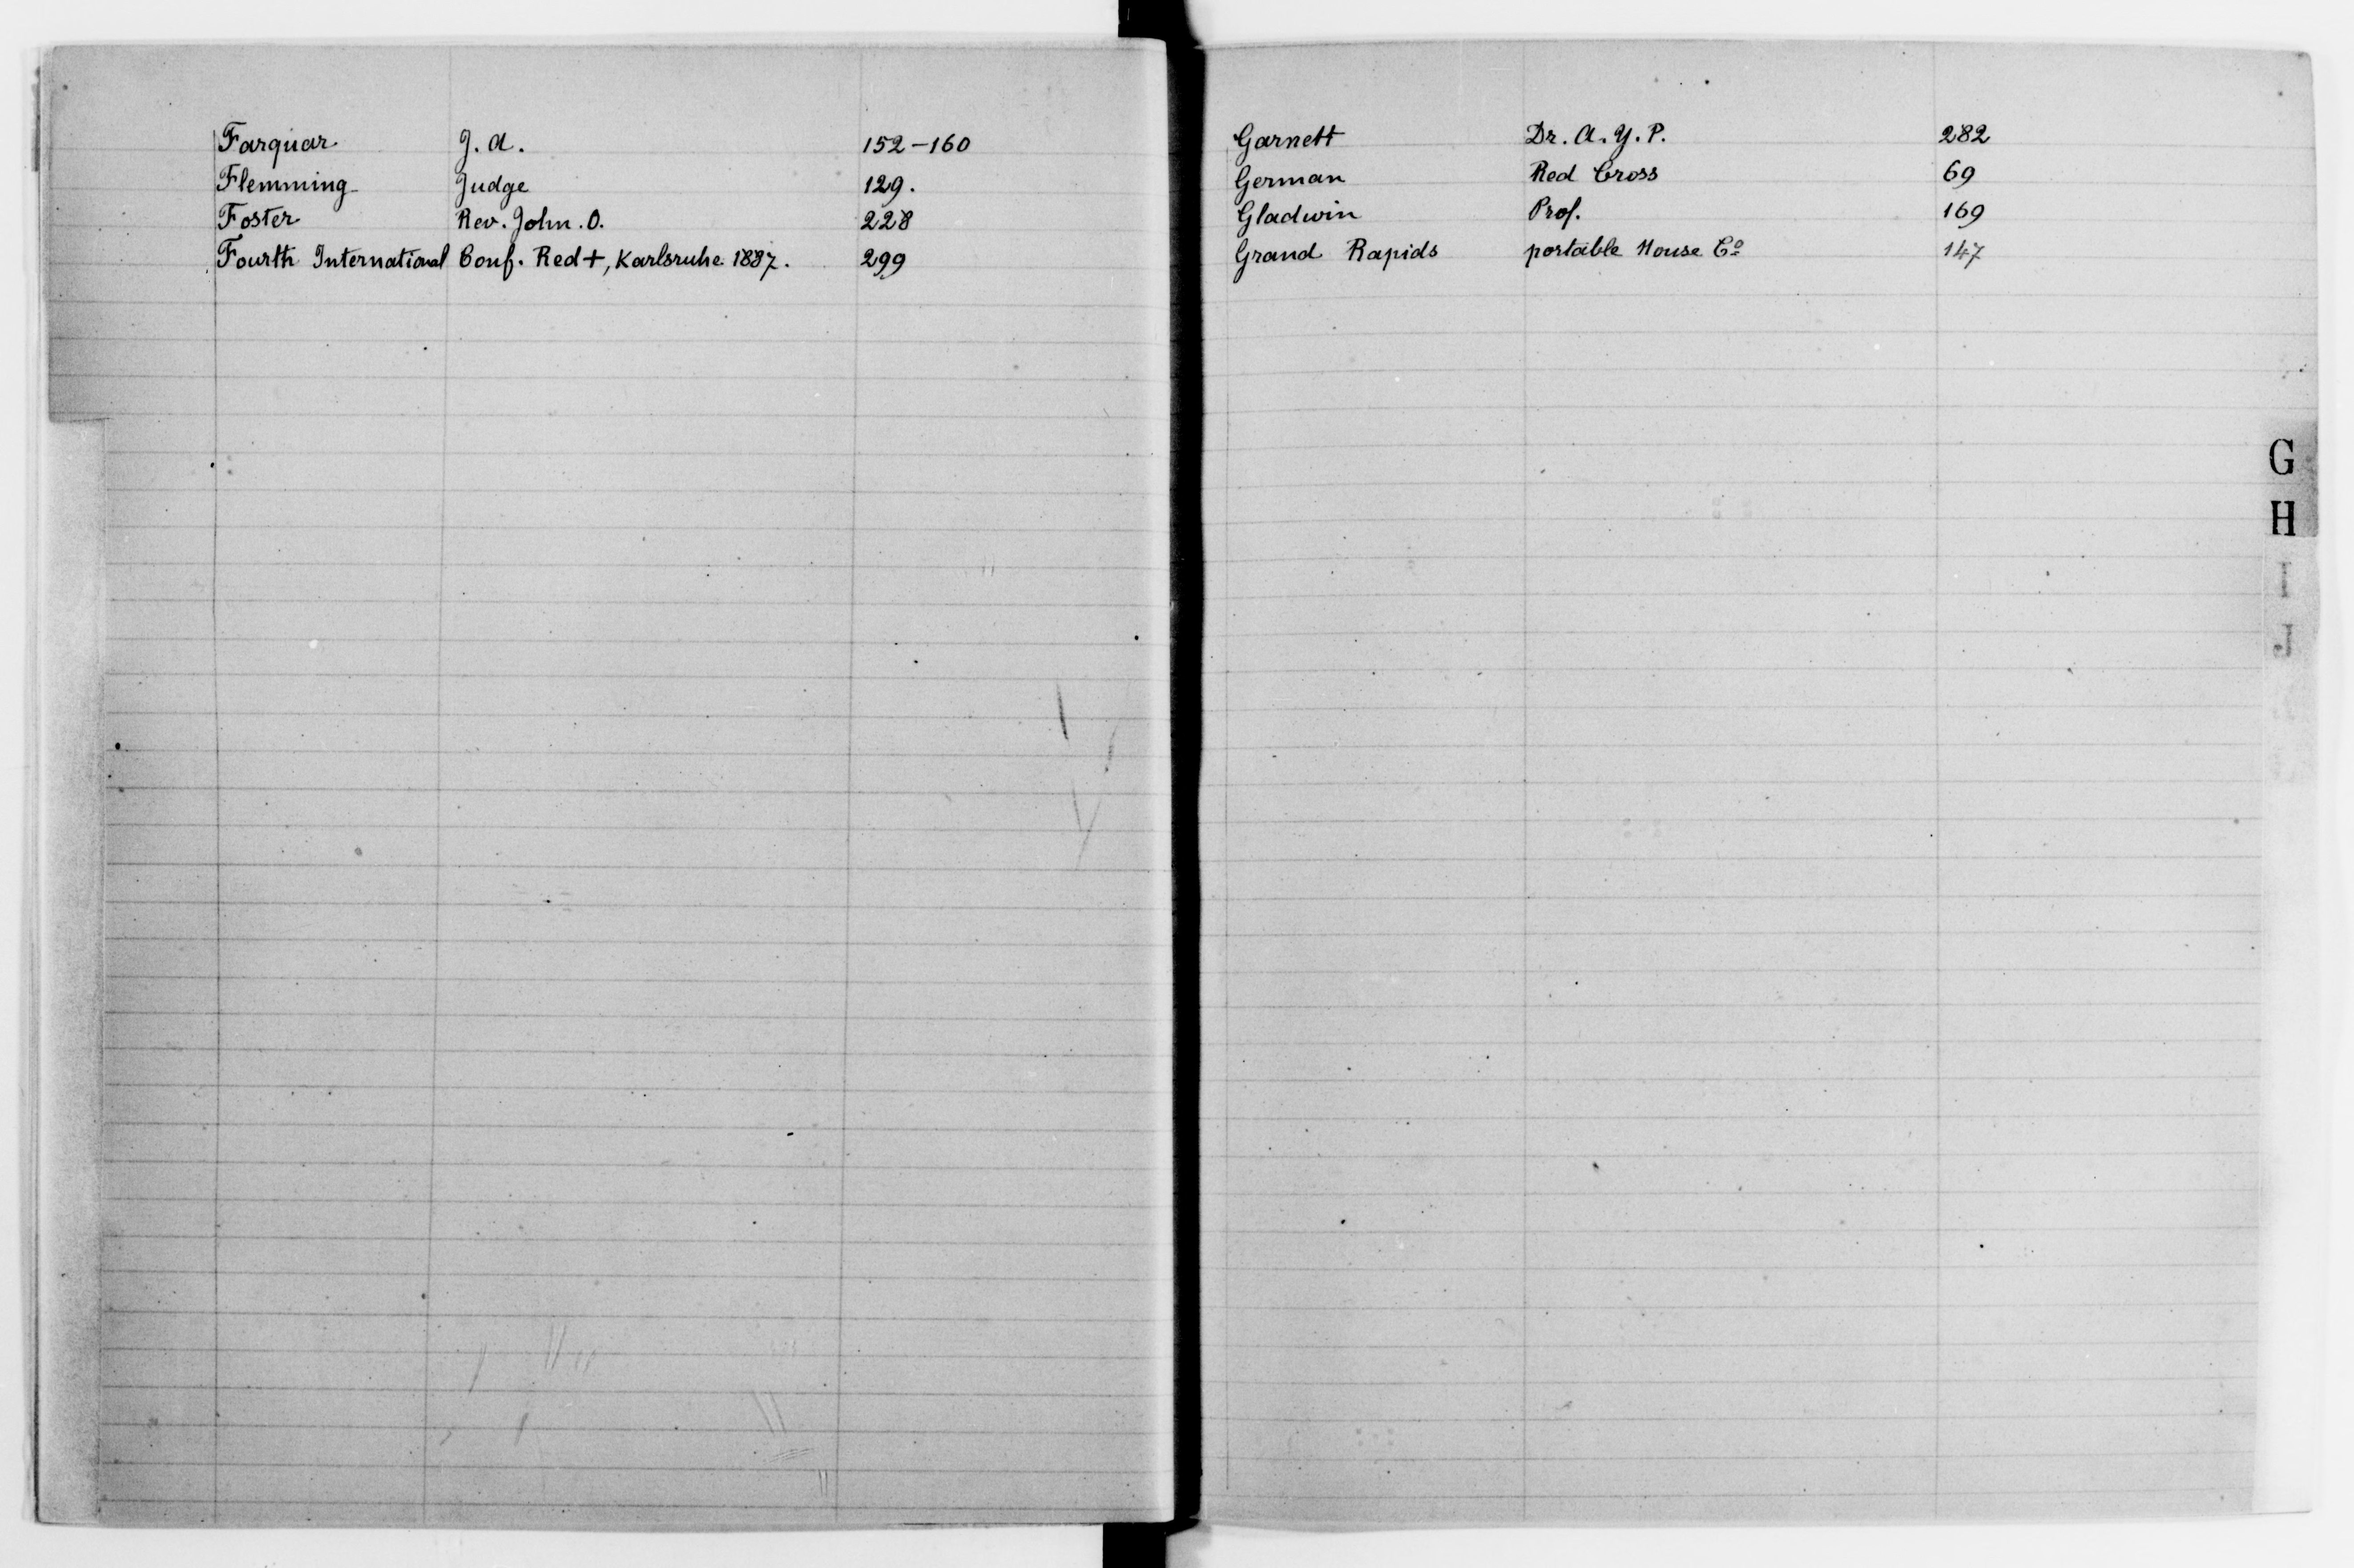 Farquar J. A. 152-160
Flemming Judge 129.
Foster Rev. John. O. 228
Fourth International Conf. Red +, Karlsruhe 1887. 299
Garnett Dr. A. Y. P. 282
German Red Cross 69
Gladwin Prof. 169
Grand Rapids portable House Co 147
G
H
I
L